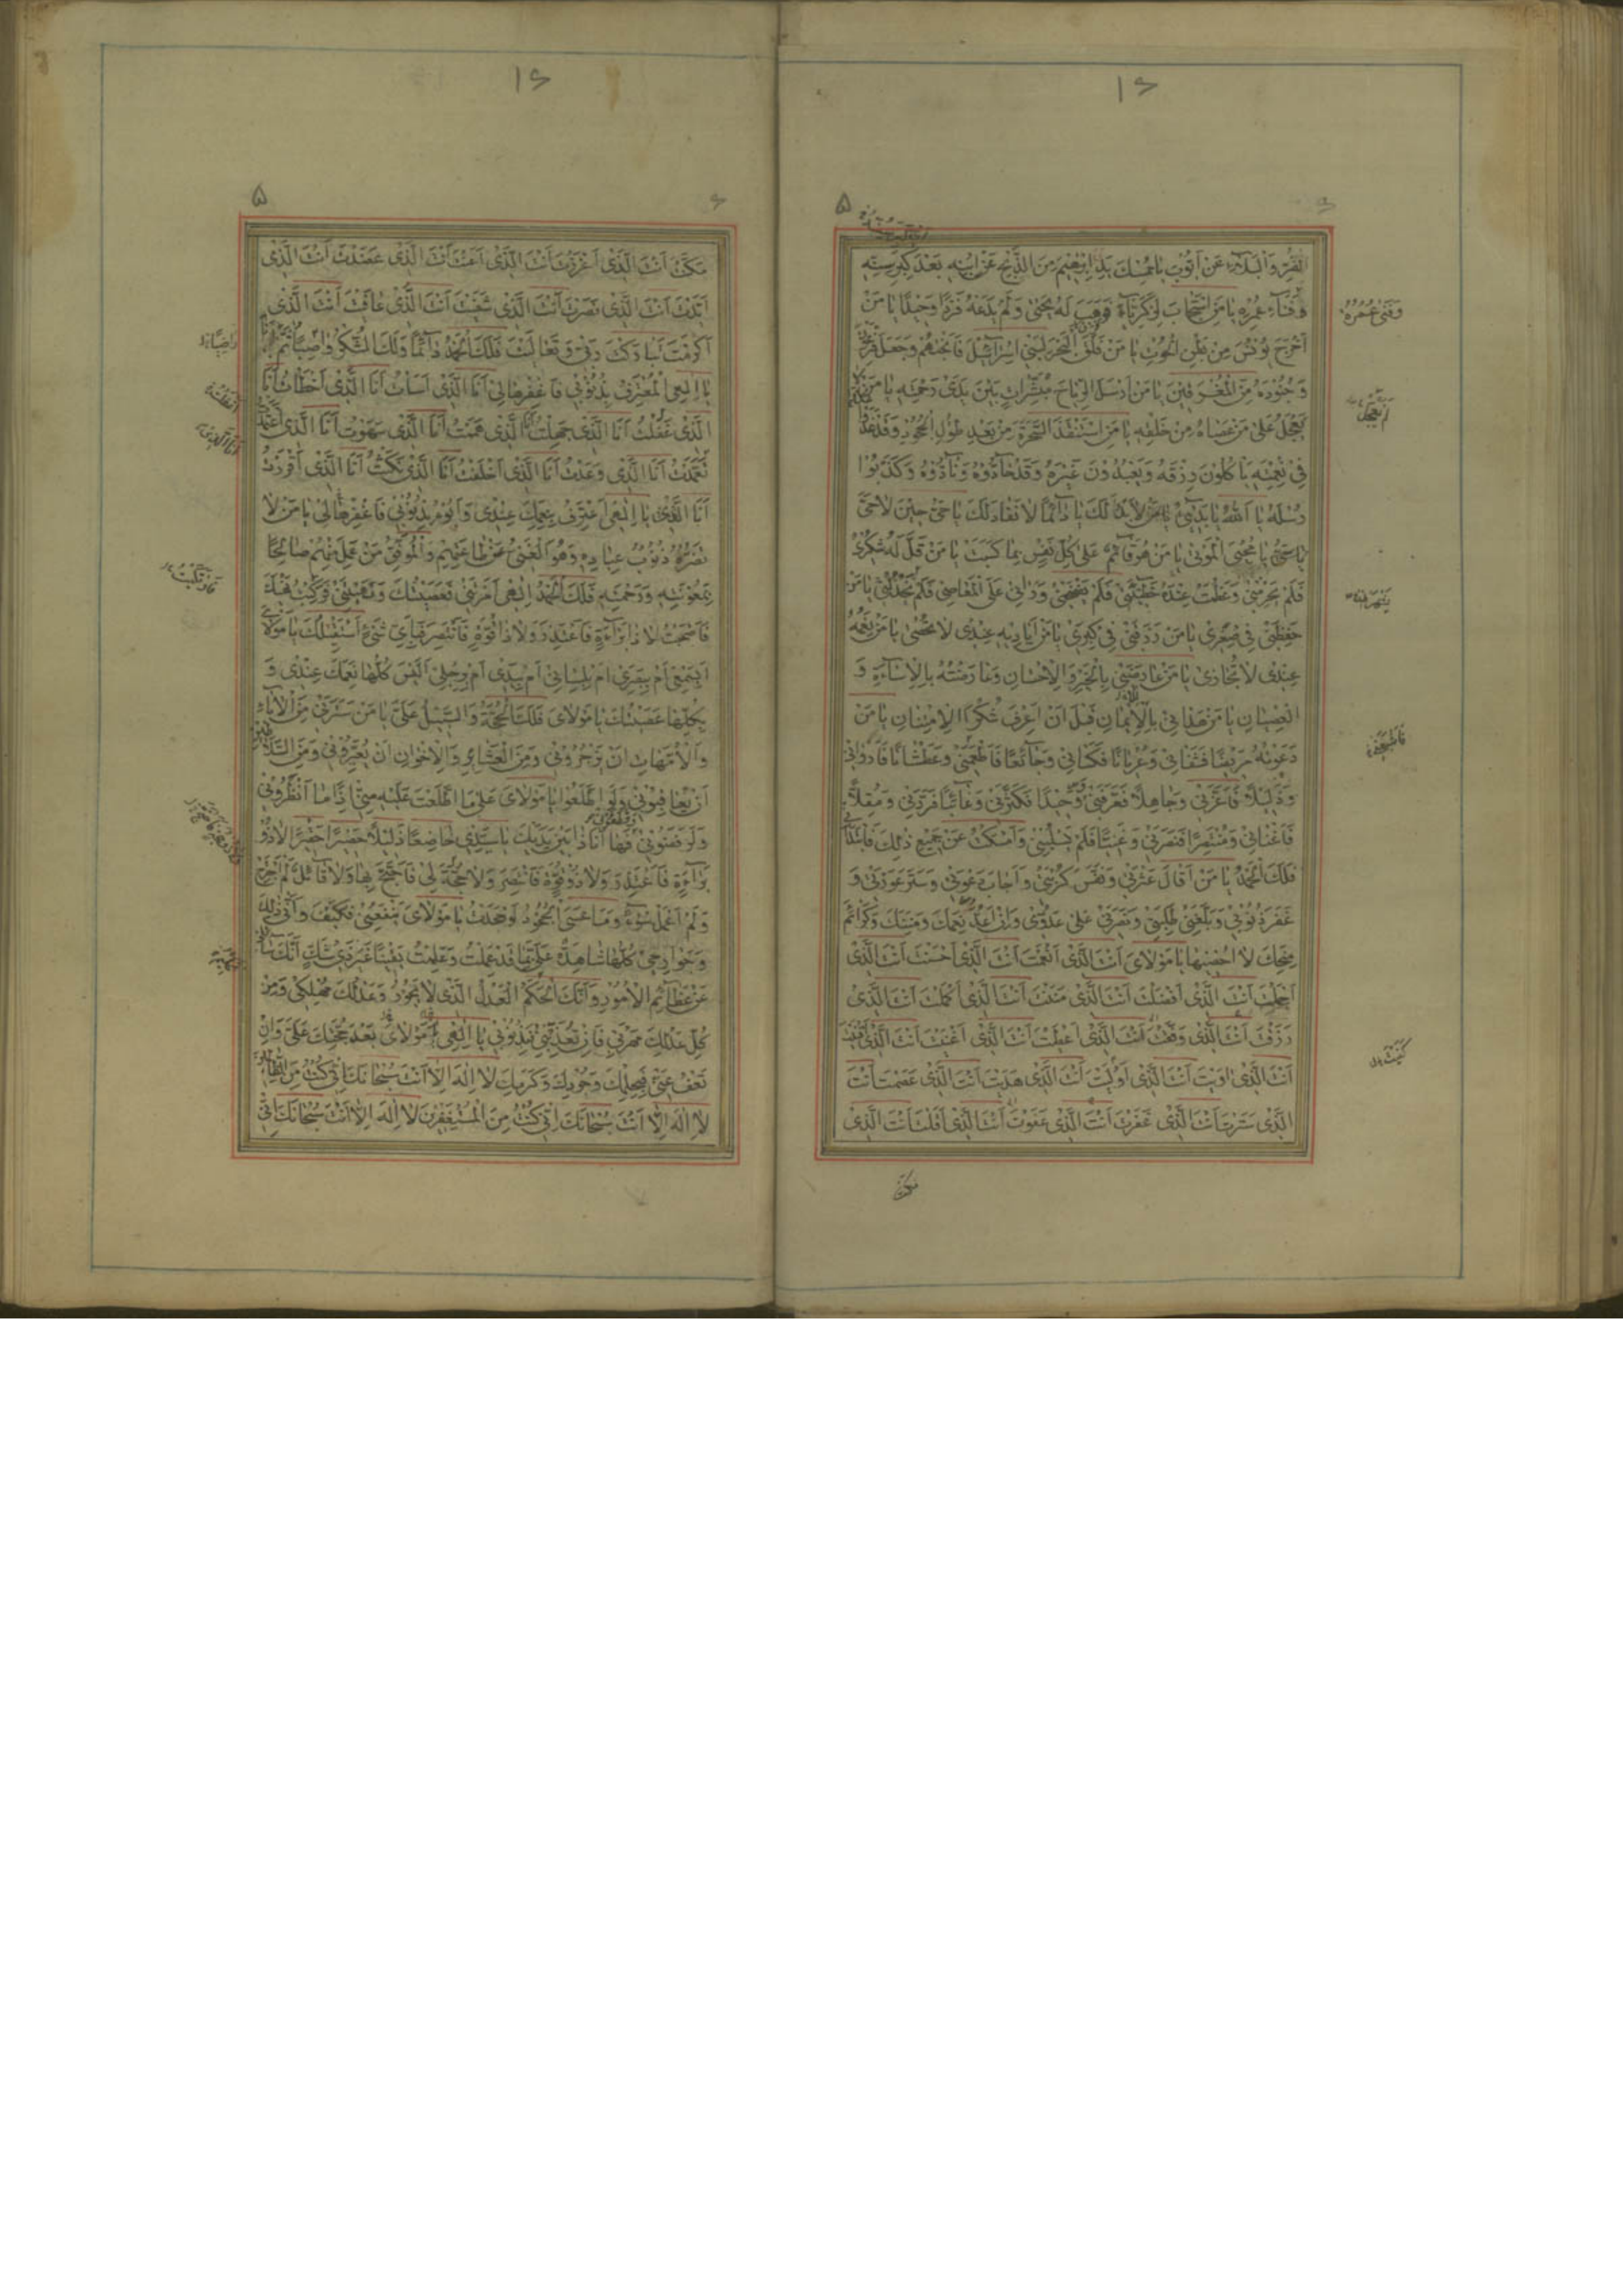 الضُّرِّ وَالْبَلَاءِ عَنْ أَيُّوبَ يَا مُمْسِكَ يَدِ إِبْرٰهِيمَ مِنَ الذَّبْحِ عَنِ ابْنِهِ بَعْدَ كِبَرِ سِنِّهِ
وَفَنَاءِ عُمُرِهِ يَا مَنِ اسْتَجَابَ لِزَكَرِيَّا فَوَهَبَ لَهُ يَحْيٰى وَلَمْ يَدَعْهُ فَرْدًا وَحِيدًا يَا مَنْ
أَخْرَجَ يُونُسَ مِنْ بَطْنِ الْحُوتِ يَا مَنْ فَلَقَ الْبَحْرَ لِبَنِي إِسْرَآئِيلَ فَأَنْجَاهُمْ وَجَعَلَ فِرْعَوْنَ
وَجُنُودَهُ مِنَ الْمُغْرَقِينَ يَا مَنْ أَرْسَلَ الرِّيَاحَ مُبَشِّرَاتٍ بَيْنَ يَدَيْ رَحْمَتِهِ يَا مَنْ لَمْ
يَعْجَلْ عَلٰى مَنْ عَصَاهُ مِنْ خَلْقِهِ يَا مَنِ اسْتَنْقَذَ السَّحَرَةَ مِنْ بَعْدِ طُولِ الْجُحُودِ وَقَدْ غَدَوْا
فِي نِعْمَتِهِ يَأْكُلُونَ رِزْقَهُ وَيَعْبُدُونَ غَيْرَهُ وَقَدْ حَادُّوهُ وَنَادُّوهُ وَكَذَّبُوا
رُسُلَهُ يَا اَللّٰهُ يَا بَدِيءُ لَا بَدْءَ لَكَ يَا دَائِمًا لَا نَفَادَ لَكَ يَا حَيُّ حِينَ لَا حَيَّ
يَا مُحْيِيَ الْمَوْتٰى يَا مَنْ هُوَ قَائِمٌ عَلٰى كُلِّ نَفْسٍ بِمَا كَسَبَتْ يَا مَنْ قَلَّ لَهُ شُكْرِي
فَلَمْ يَحْرِمْنِي وَعَظُمَتْ عِنْدَهُ خَطِيئَتِي فَلَمْ يَفْضَحْنِي وَرَاٰنِي عَلَى الْمَعَاصِي فَلَمْ يَخْذُلْنِي يَا مَنْ
حَفِظَنِي فِي صِغَرِي يَا مَنْ رَزَقَنِي فِي كِبَرِي يَا مَنْ أَيَادِيهِ عِنْدِي لَا تُحْصٰى يَا مَنْ نِعَمُهُ
عِنْدِي لَا تُجَازٰى يَا مَنْ عَارَضَنِي بِالْخَيْرِ وَالْإِحْسَانِ وَعَارَضْتُهُ بِالْإِسَاءَةِ وَ
الْعِصْيَانِ يَا مَنْ هَدَانِي بِالْإِيمَانِ قَبْلَ أَنْ أَعْرِفَ شُكْرَ الْإِمْتِنَانِ يَا مَنْ
دَعَوْتُهُ مَرِيضًا فَشَفَانِي وَعُرْيَانًا فَكَسَانِي وَجَائِعًا فَأَطْعَمَنِي وَعَطْشَانًا فَأَرْوَانِي
وَذَلِيلًا فَأَعَزَّنِي وَجَاهِلًا فَعَرَّفَنِي وَوَحِيدًا فَكَثَّرَنِي وَغَائِبًا فَرَدَّنِي وَمُقِلًّا
فَأَغْنَانِي وَمُنْتَصِرًا فَنَصَرَنِي وَغَنِيًّا فَلَمْ يَسْلُبْنِي وَأَمْسَكْتُ عَنْ جَمِيعِ ذٰلِكَ فَابْتَدَأَنِي
فَلَكَ الْحَمْدُ يَا مَنْ أَقَالَ عَثْرَتِي وَنَفَّسَ كُرْبَتِي وَأَجَابَ دَعْوَتِي وَسَتَرَ عَوْرَتِي وَ
غَفَرَ ذُنُوبِي وَبَلَّغَنِي طَلِبَتِي وَنَصَرَنِي عَلٰى عَدُوِّي وَإِنْ أَعُدَّ نِعَمَكَ وَمِنَنَكَ وَكَرَائِمَ
مِنَحِكَ لَا أُحْصِيهَا يَا مَوْلَايَ أَنْتَ الَّذِي أَنْعَمْتَ أَنْتَ الَّذِي أَحْسَنْتَ أَنْتَ الَّذِي
أَجْمَلْتَ أَنْتَ الَّذِي أَفْضَلْتَ أَنْتَ الَّذِي مَنَنْتَ أَنْتَ الَّذِي أَكْمَلْتَ أَنْتَ الَّذِي
رَزَقْتَ أَنْتَ الَّذِي وَفَّقْتَ أَنْتَ الَّذِي أَعْطَيْتَ أَنْتَ الَّذِي أَغْنَيْتَ أَنْتَ الَّذِي أَقْنَيْتَ
أَنْتَ الَّذِي اٰوَيْتَ أَنْتَ الَّذِي أَنْتَ الَّذِي هَدَيْتَ أَنْتَ الَّذِي عَصَمْتَ أَنْتَ
الَّذِي سَتَرْتَ أَنْتَ الَّذِي غَفَرْتَ أَنْتَ الَّذِي عَفَوْتَ أَنْتَ الَّذِي أَقَلْتَ أَنْتَ الَّذِي
مكنت
مَكَّنْتَ أَنْتَ الَّذِي أَعْزَزْتَ أَنْتَ الَّذِي أَعَنْتَ أَنْتَ الَّذِي عَضَدْتَ أَنْتَ الَّذِي
أَيَّدْتَ أَنْتَ الَّذِي نَصَرْتَ أَنْتَ الَّذِي شَفَيْتَ أَنْتَ الَّذِي عَافَيْتَ أَنْتَ الَّذِي
أَكْرَمْتَ تَبَارَكْتَ رَبِّي وَتَعَالَيْتَ فَلَكَ الْحَمْدُ دَائِمًا وَلَكَ الشُّكْرُ وَاصِبًا ثُمَّ أَنَا
يَا إِلٰهِي الْمُعْتَرِفُ بِذُنُوبِي فَاغْفِرْهَا لِي أَنَا الَّذِي أَسَأْتُ أَنَا الَّذِي أَخْطَأْتُ أَنَا
الَّذِي غَفَلْتُ أَنَا الَّذِي جَهِلْتُ أَنَا الَّذِي هَمَمْتُ أَنَا الَّذِي سَهَوْتُ أَنَا الَّذِي اعْتَمَدْتُ
تَعَمَّدْتُ أَنَا الَّذِي وَعَدْتُ أَنَا الَّذِي أَخْلَفْتُ أَنَا الَّذِي نَكَثْتُ أَنَا الَّذِي أَقْرَرْتُ
أَنَا الَّذِي يَا إِلٰهِي أَعْتَرِفُ بِنِعَمِكَ عِنْدِي وَأَبُوءُ بِذُنُوبِي فَاغْفِرْهَا لِي يَا مَنْ لَا
تَضُرُّهُ ذُنُوبُ عِبَادِهِ وَهُوَ الْغَنِيُّ عَنْ طَاعَتِهِمْ وَالْمُوَفِّقُ مَنْ عَمِلَ مِنْهُمْ صَالِحًا
بِمَعُونَتِهِ وَرَحْمَتِهِ فَلَكَ الْحَمْدُ إِلٰهِي أَمَرْتَنِي فَعَصَيْتُكَ وَنَهَيْتَنِي فَرَكِبْتُ نَهْيَكَ
فَأَصْبَحْتُ لَا ذَا بَرَاءَةٍ فَأَعْتَذِرَ وَلَا ذَا قُوَّةٍ فَأَنْتَصِرَ فَبِأَيِّ شَيْءٍ أَسْتَقْبِلُكَ يَا مَوْلَايَ
أَبِسَمْعِي أَمْ بِبَصَرِي أَمْ بِلِسَانِي أَمْ بِيَدِي أَمْ بِرِجْلِي أَلَيْسَ كُلُّهَا نِعَمَكَ عِنْدِي وَ
بِكُلِّهَا عَصَيْتُكَ يَا مَوْلَايَ فَلَكَ الْحُجَّةُ وَالسَّبِيلُ عَلَيَّ يَا مَنْ سَتَرَنِي مِنَ الْاٰبَاءِ
وَالْأُمَّهَاتِ أَنْ يَزْجُرُونِي وَمِنَ الْعَشَائِرِ وَالْإِخْوَانِ أَنْ يُعَيِّرُونِي وَمِنَ السَّلَاطِينِ
أَنْ يُعَاقِبُونِي وَلَوِ اطَّلَعُوا يَا مَوْلَايَ عَلٰى مَا اطَّلَعْتَ عَلَيْهِ مِنِّي إِذًا مَا أَنْظَرُونِي
وَلَرَفَضُونِي فَهَا أَنَا ذَا بَيْنَ يَدَيْكَ يَا سَيِّدِي خَاضِعًا ذَلِيلًا حَصِيرًا حَقِيرًا لَا ذُو
بَرَاءَةٍ فَأَعْتَذِرَ وَلَا ذُو قُوَّةٍ فَأَنْتَصِرَ وَلَا حُجَّةَ لِي فَأَحْتَجَّ بِهَا وَلَا قَائِلٌ لَمْ أَجْتَرِحْ
وَلَمْ أَعْمَلْ سُوءً وَمَا عَسَى الْجُحُودُ لَوْ جَحَدْتُ يَا مَوْلَايَ يَنْفَعُنِي فَكَيْفَ وَأَنّٰى ذٰلِكَ
وَجَوَارِحِي كُلُّهَا شَاهِدَةٌ عَلَيَّ بِمَا قَدْ عَمِلْتُ وَعَلِمْتُ يَقِينًا غَيْرَ ذِي شَكٍّ أَنَّكَ سَائِلِي
عَنْ عَظَائِمِ الْأُمُورِ وَأَنَّكَ الْحَكَمُ الْعَدْلُ الَّذِي لَا يَجُورُ وَعَدْلُكَ مُهْلِكِي وَمِنْ
كُلِّ عَدْلِكَ مَهْرَبِي فَإِنْ تُعَذِّبْنِي فَبِذُنُوبِي يَا إِلٰهِي مَوْلَايَ بَعْدَ حُجَّتِكَ عَلَيَّ وَإِنْ
تَعْفُ عَنِّي فَبِحِلْمِكَ وَجُودِكَ وَكَرَمِكَ لَا إِلٰهَ إِلَّا أَنْتَ سُبْحَانَكَ إِنِّي كُنْتُ مِنَ الظَّالِمِينَ
لَا إِلٰهَ إِلَّا أَنْتَ سُبْحَانَكَ إِنِّي كُنْتُ مِنَ الْمُسْتَغْفِرِينَ لَا إِلٰهَ إِلَّا أَنْتَ سُبْحَانَكَ إِنِّي